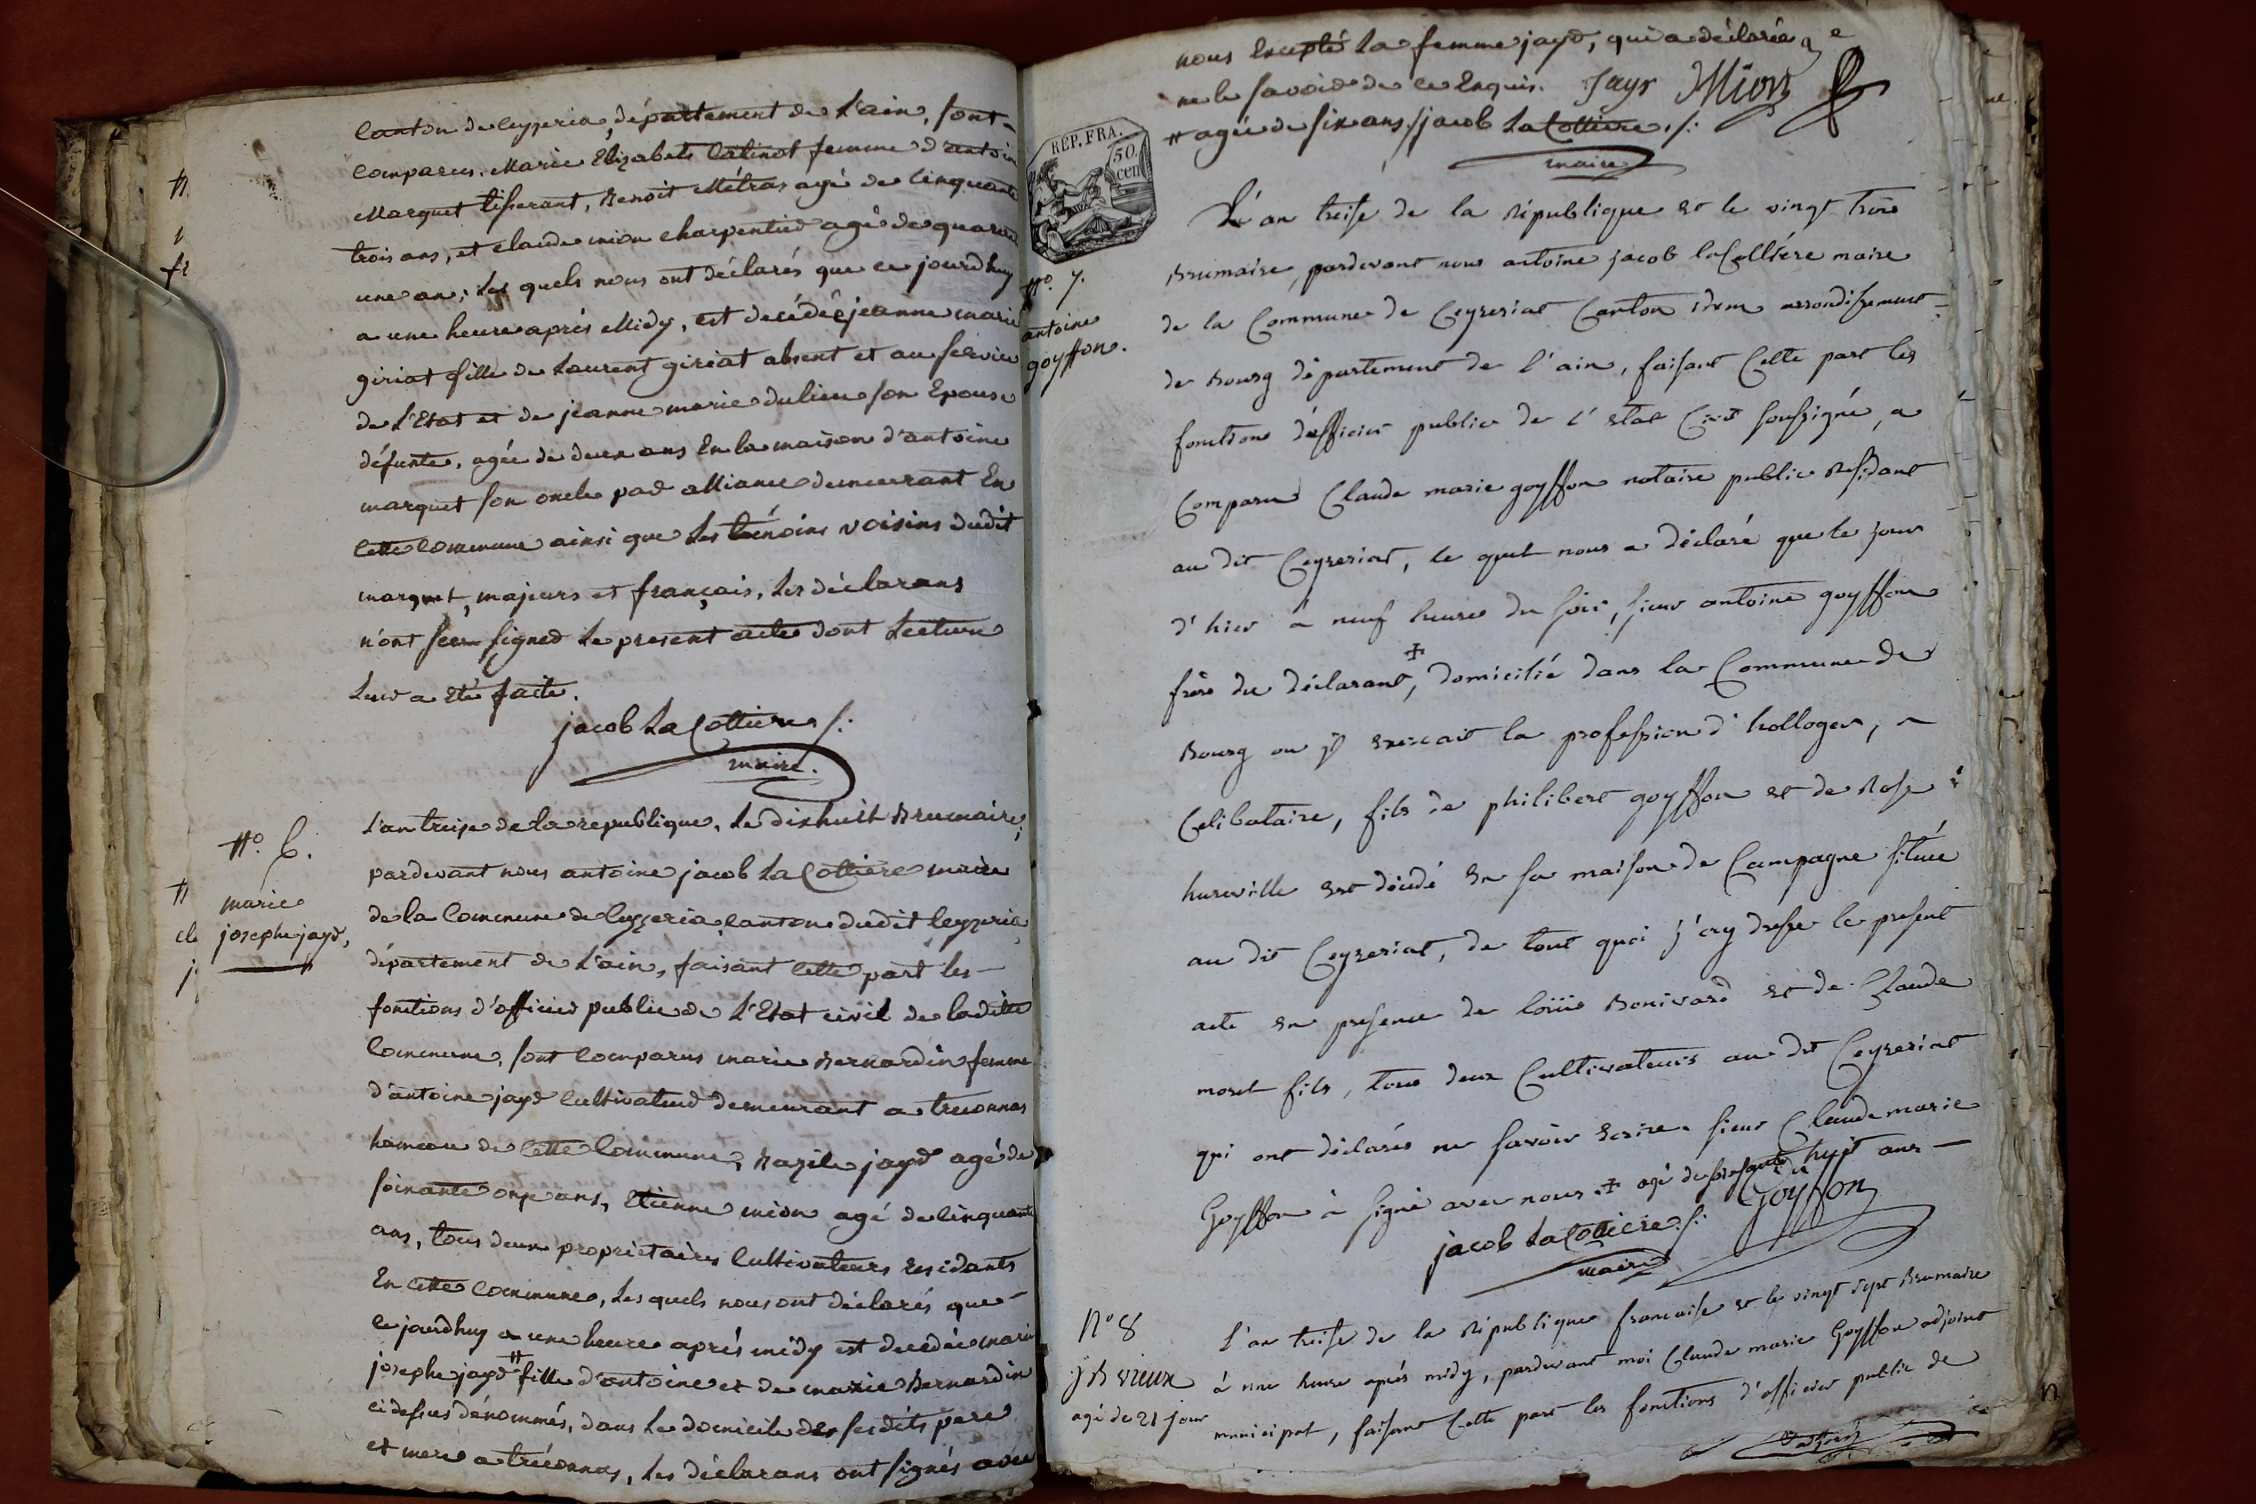 Canton de Ceyzeria, département de L'ain, sont
Comparus. Marie Elizabets Catinot femme d'antoin
Marquet tisserant, Benoit Métras agé de Cinquante
trois ans, et claude mion charpentied agé de quarante
une an; Les quels nous ont déclarés que ce jourdhuy
a une heure après Midy, est decédée jeanne marie
giriat fille de Laurent giriat absent et au service
de L'Etat et de jeanne marie dulieu son Epouse
défunte, agée de deux ans En la maison d'antoine
marquet son oncle par alliance demeurrant En
cette commune ainsi que Les témoins voisins dudit
marquet, majeurs et français, Les déclarans
n'ont signed Le present acte dont Lecture
Leur a Eté faite.
jacob La Cottiere /:
maire.
N.o 6.
marie
josephe jayr,
L'an treize de la republique, Le dixhuit Brumaire,
pardevant nous antoine jacob La Cottiere maire
de la Commune de Ceyzeria, canton dudit Ceyzeria,
département de L'ain, faisant Cette part les
fonctions d'officier public de L'Etat civil de la ditte
Commune, sont Comparus marie Bernardin femme
d'antoine jayr Cultivateur demeurant a treconnas
hameau de cette Commune, Bazile jayr agé de
soixante onze ans, Etienne mion agé de Cinquante
ans, tous deux proprietaires Cultivateurs Residants
En cette commune, Les quels nous ont déclarés que
ce jourdhuy a une heure après midy est decedée marie
josephe jayr # fille d'antoine et de marie Bernardin
cidessus dénommés, dans Le domicile des ses dits pere
et mere a tréconnas, Les déclarans ont signés avec
nous Excepté La femme jayr, qui a déclarée
ne le savoir de ce Enquis. Jayr Mion
# agée de six ans /jacob La Cottiere ./:
maire
REP. FRA.
50
cen
N.o 7.
antoine
goyffon.
L'an treise de la République et le vingt trois
Brumaire, pardevant nous antoine jacob la Cottiére maire
de la Commune de Ceyzeriat Canton idem arrondissement
de Bourg département de l'ain, faisant Cette part les
fonctions d'officier public de l'etat Civil soussigné, a
Comparu Claude marie goyffon notaire public Residant
au dit Ceyzeriat, le quel nous a déclaré que le jour
d'hier à neuf heures du soir, sieur antoine goyffon
frère du déclarant ✝, domicilié dans la Commune de
Bourg ou il exercait la profession d'hologer,
Celibataire, fils de philibert goyffon et de Rose
hureville est décédé en sa maison de Campagne située
au dit Ceyzeriat, de tout quoi j'ay dresse le present
acte en presence de loüis Bonivard et de Claude
moret fils, tous deux Cultivateurs au dit Ceyzeriat
qui ont déclarés ne savoir Ecrire. sieur Claude marie
Goyffon à signé avec nous. ✝ agé de huit ans
jacob La Cottiere ./: Goyffon
maire
N.o 8
agé de 21 jour
L'an treise de la République francaise et le vingt sept Brumaire
à une heure après midy, pardevant moi Claude marie Goyffon adjoint
municipal, faisant Cette part les fonctions d'officier public de